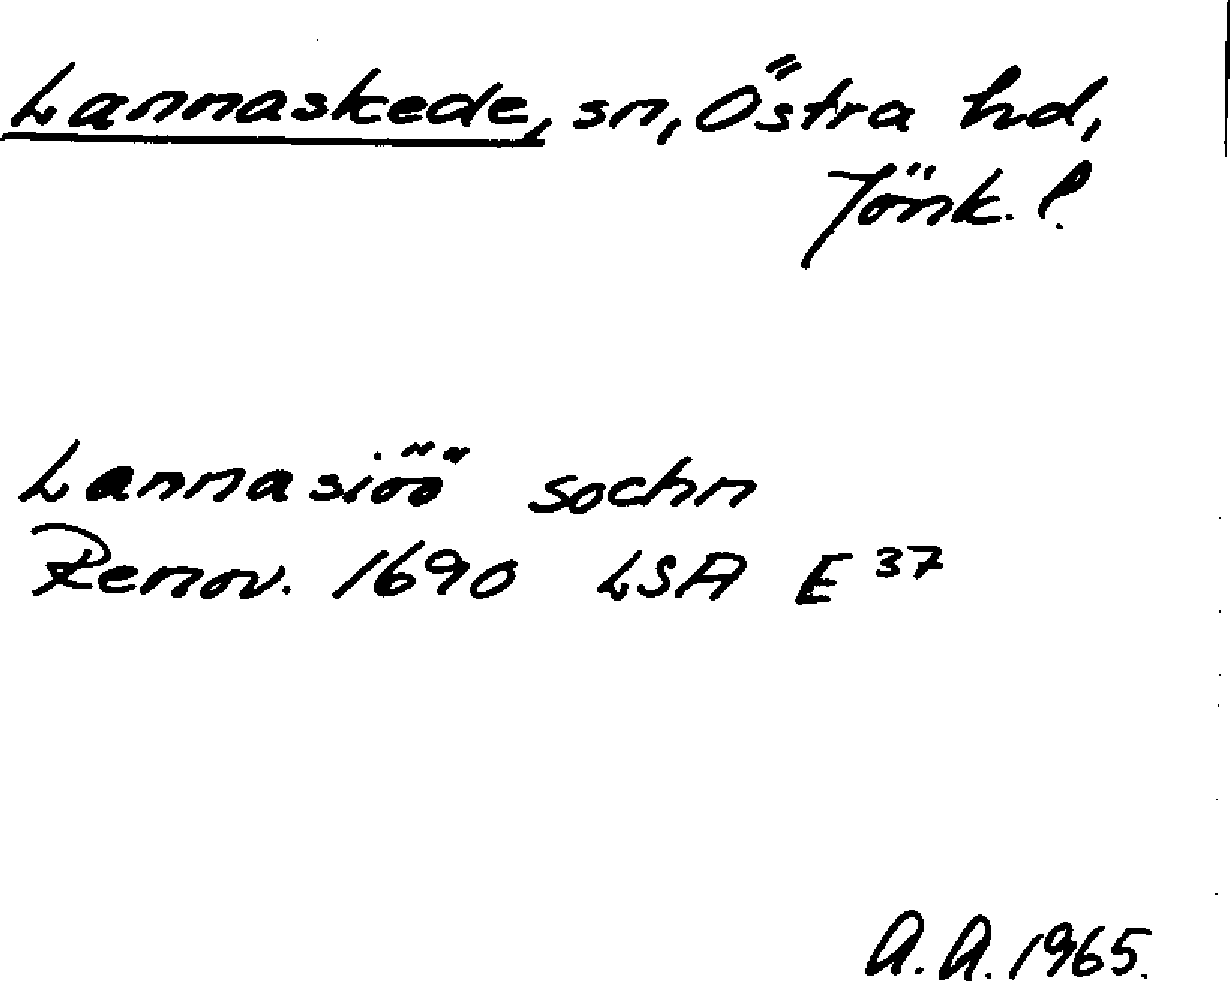 Lannaskede, sn, Östra hd,
Jönk. l.
Lannasiöö sochn
Renov. 1690 LSA E 37
A. A. 1965.